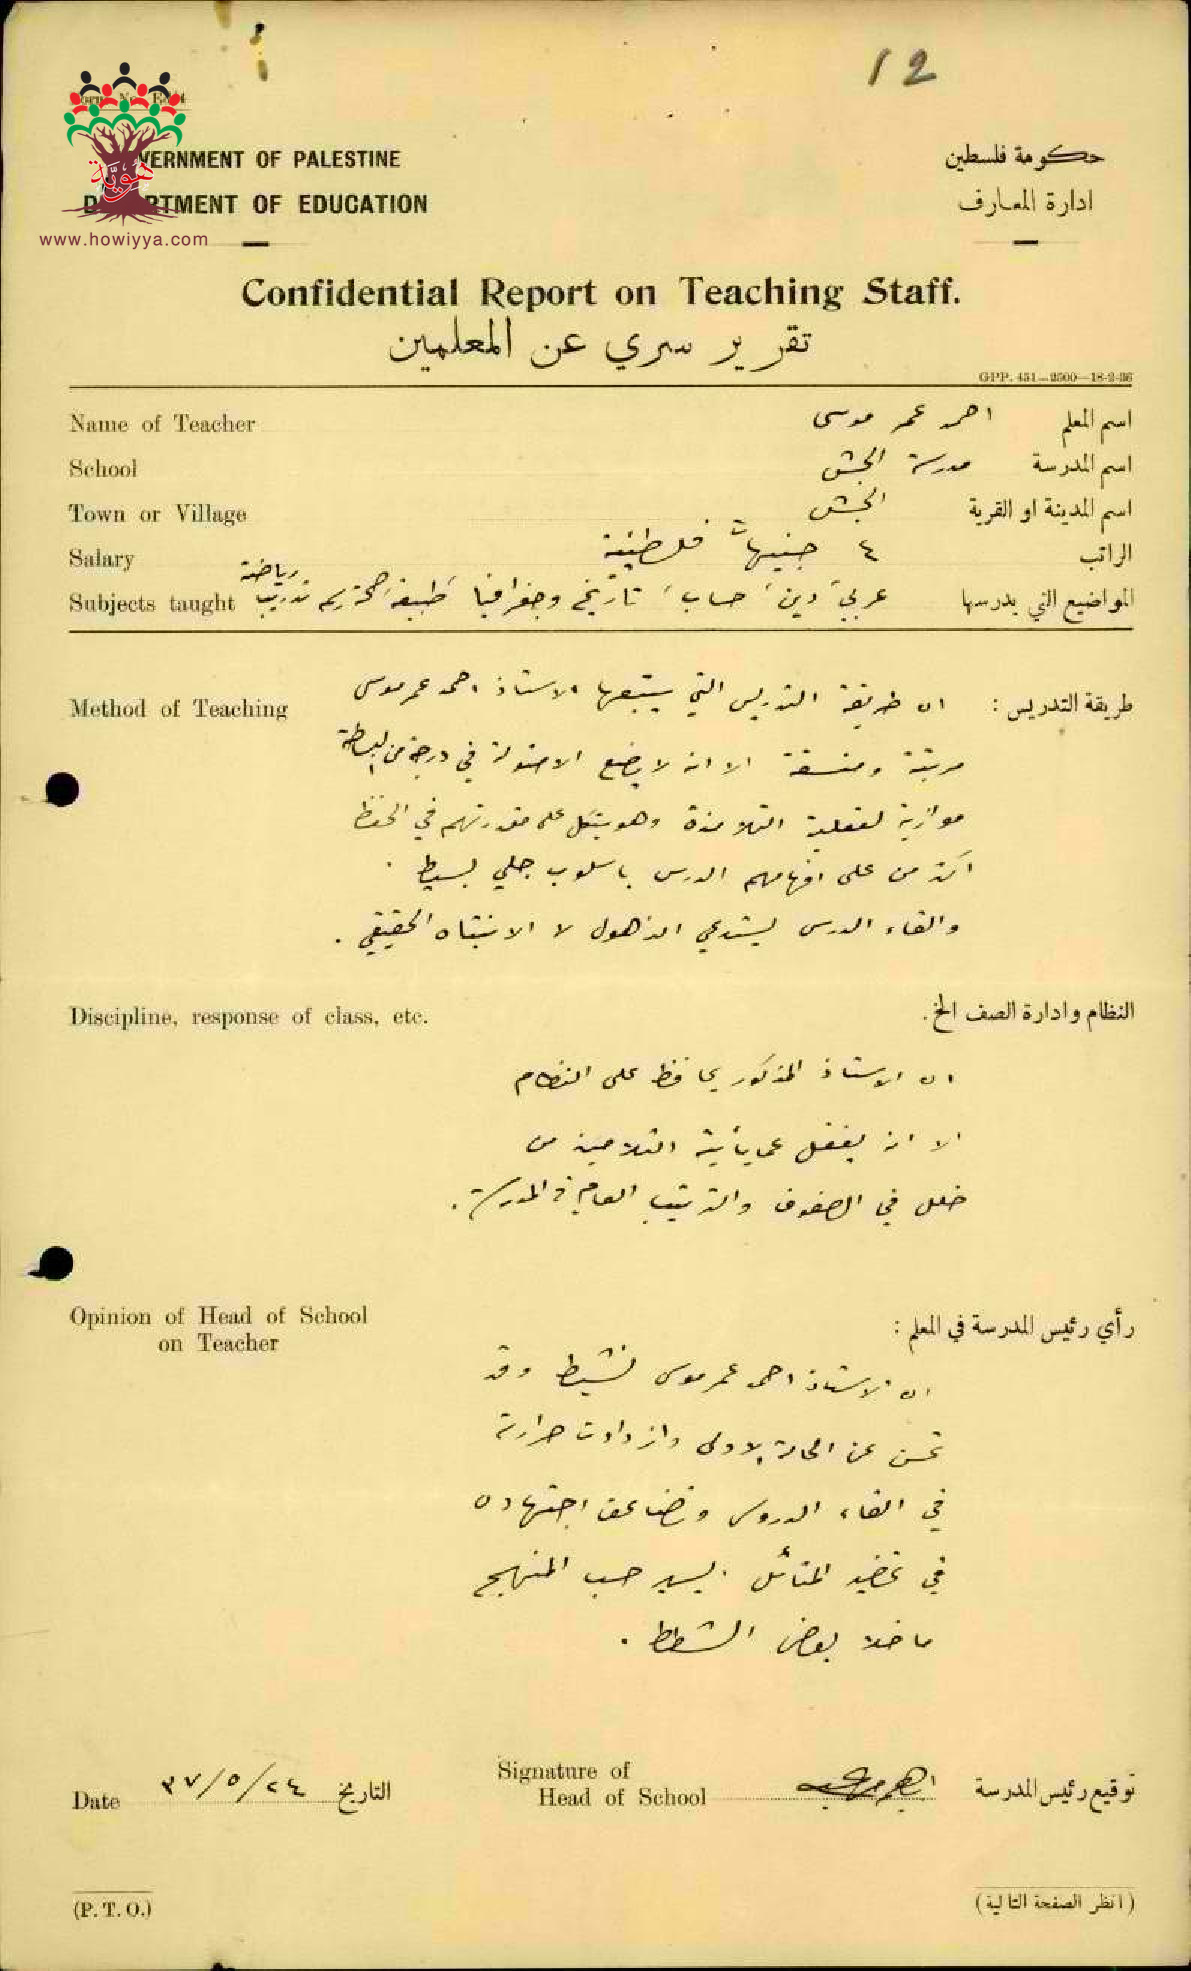 12
GOVERNMENT OF PALESTINE
حكومة فلسطين
DEPARTMENT OF EDUCATION
ادارة المعارف
هوية
www.howiyya.com
Confidential Report on Teaching Staff.
تقرير سري عن المعلمين
GPP. 451—2500—18-2-36
Name of Teacher احمد عمر موسى اسم المعلم
School مدرسة الجش اسم المدرسة
Town or Village الجش اسم المدينة او القرية
Salary ٤ جنيهات فلسطينية الراتب
رياضة
Subjects taught عربي، دين، حساب، تاريخ وجغرافيا، طبيعة، صحة رسم تدريب المواضيع التي يدرسها
Method of Teaching طريقة التدريس : ان طريقة التدريس التي يتبعها الاستاذ احمد عمر موسى
مرتبة ومنسقة الا انه لا يضع الاسئولة في درجة من البساطة
موازية لعقلية التلامذة وهو يتكل على مقدرتهم في الحفظ
اكثر من على افهامهم الدرس باسلوب جلي بسيط .
والقاء الدرس يستدعي الذهول لا الانتباه الحقيقي .
Discipline, response of class, etc. النظام وادارة الصف الخ.
ان الاستاذ المذكور يحافظ على النظام
الا انه يغفل عما يأتيه التلاميذ من
خلل في الصفوف والترتيب العام في المدرسة .
Opinion of Head of School
on Teacher
رأي رئيس المدرسة في المعلم :
ان الاستاذ احمد عمر موسى نشيط وقد
تحسن عن الحالة الاولى وازدادت حرارته
في القاء الدروس وتضاعف اجتهاده
في تحضير المسائل . يسير حسب المنهج
ما خلا بعض الشطط .
Signature of
Head of School توقيع رئيس المدرسة
Date ٢٤/٥/٣٧ التاريخ
(P. T. O.)
(انظر الصفحة التالية)